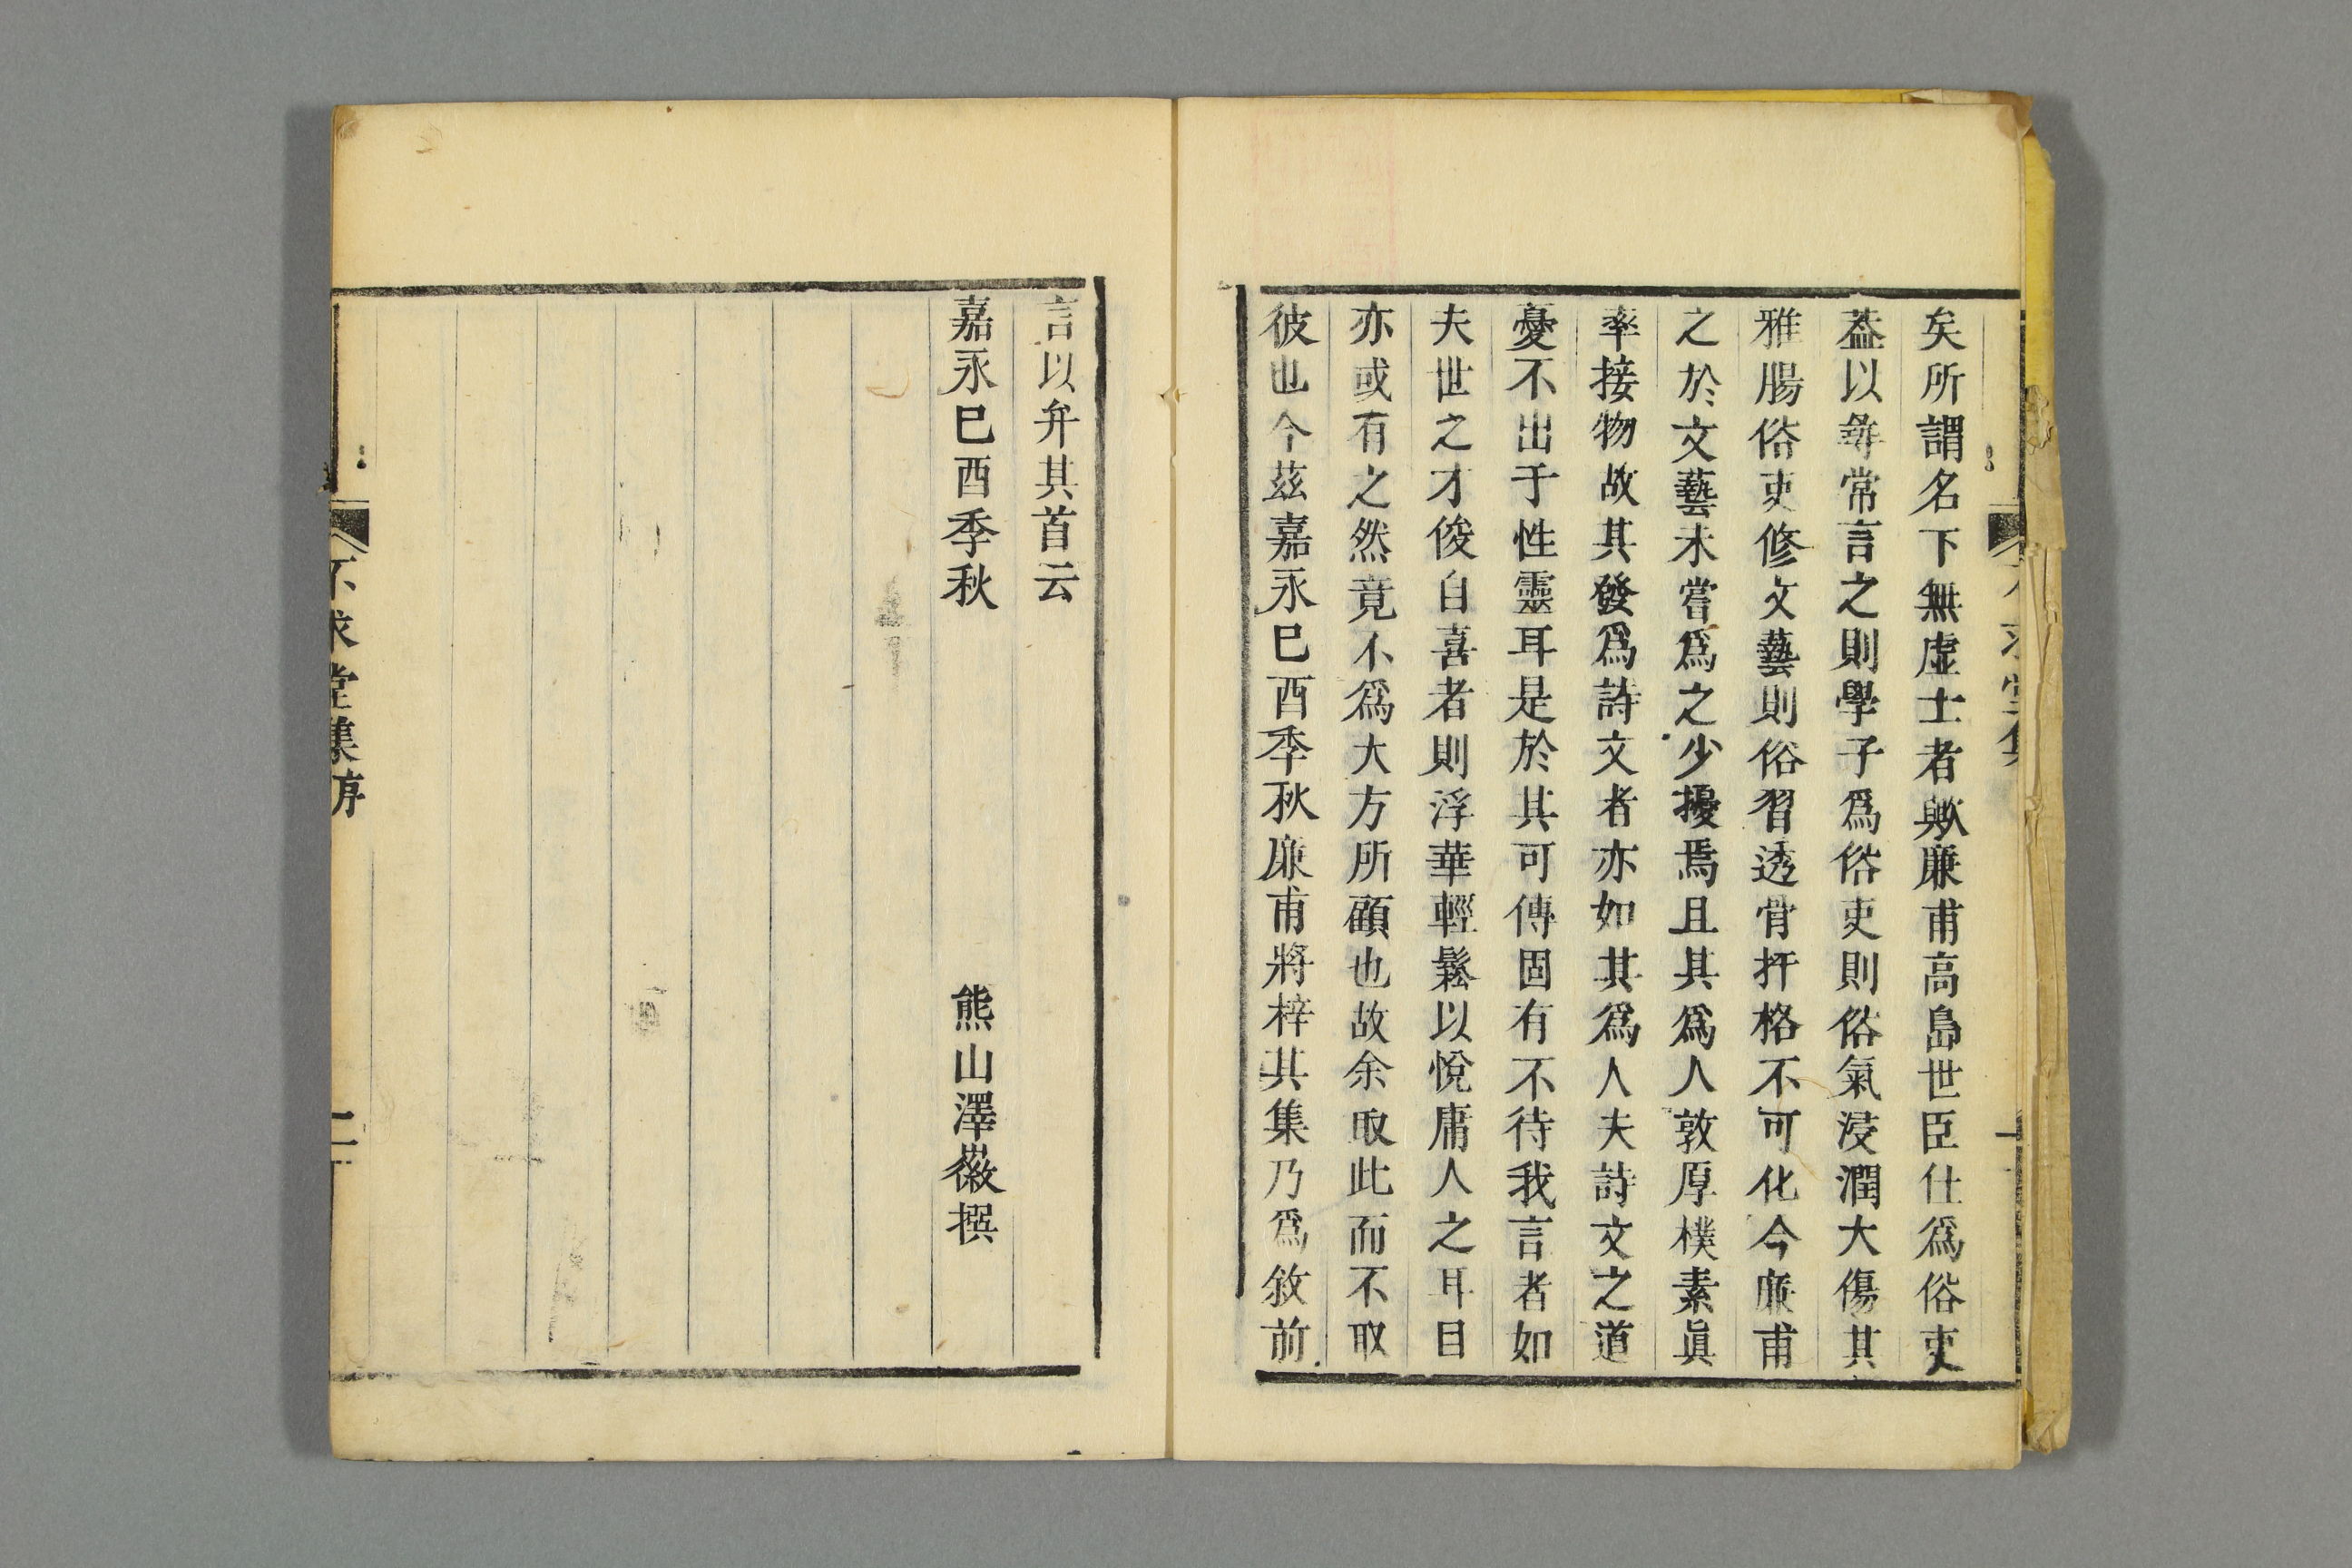 矣所謂名下無虛士者歟廉甫高島世臣仕爲俗吏
蓋以尋常言之則學子爲俗吏則俗氣浸潤大傷其
雅腸俗吏修文藝則俗習透骨扞格不可化今廉甫
之於文藝未嘗爲之少擾焉且其爲人敦厚樸素眞
率接物故其發爲詩文者亦如其爲人夫詩文之道
憂不出于性靈耳是於其可傳固有不待我言者如
夫世之才俊自喜者則浮華輕鬆以悅庸人之耳目
亦或有之然竟不爲大方所顧也故余取此而不取
彼也今茲嘉永巳酉季秋廉甫將梓其集乃爲敘前
言以弁其首云
嘉永巳酉季秋 熊山澤薇撰
不求堂集序 二